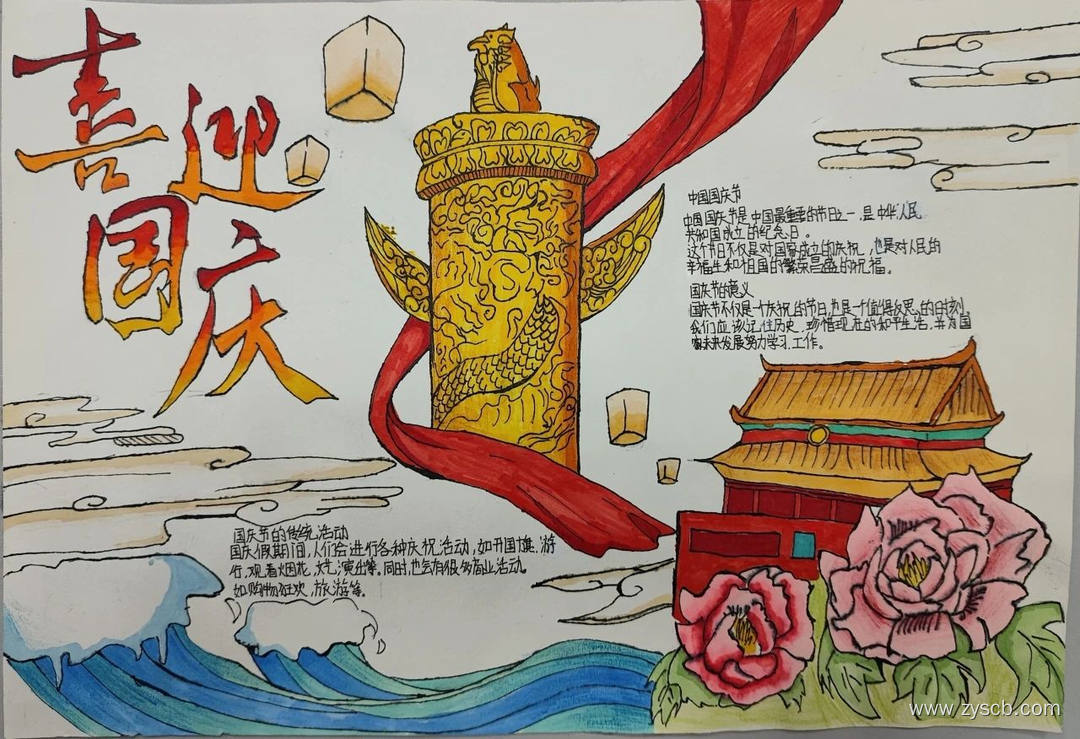 喜迎
国庆
中国国庆节
中国国庆节是中国最重要的节日之一，是中华人民
共和国成立的纪念日。
这个节日不仅是对国家成立的庆祝，也是对人民的
幸福生和祖国的繁荣昌盛的祝福。
国庆节的意义
国庆节不仅是一个庆祝的节日，也是一个值得反思的的时刻
我们应该记住历史，珍惜现在的和平生活，并为国
家未来发展努力学习，工作。
国庆节的传统活动
国庆假期间，人们会进行各种庆祝活动，如升国旗，游
行，观看烟花，文艺演出等。同时，也会有很多商业活动。
如购物狂欢，旅游等。
www.zyscb.com